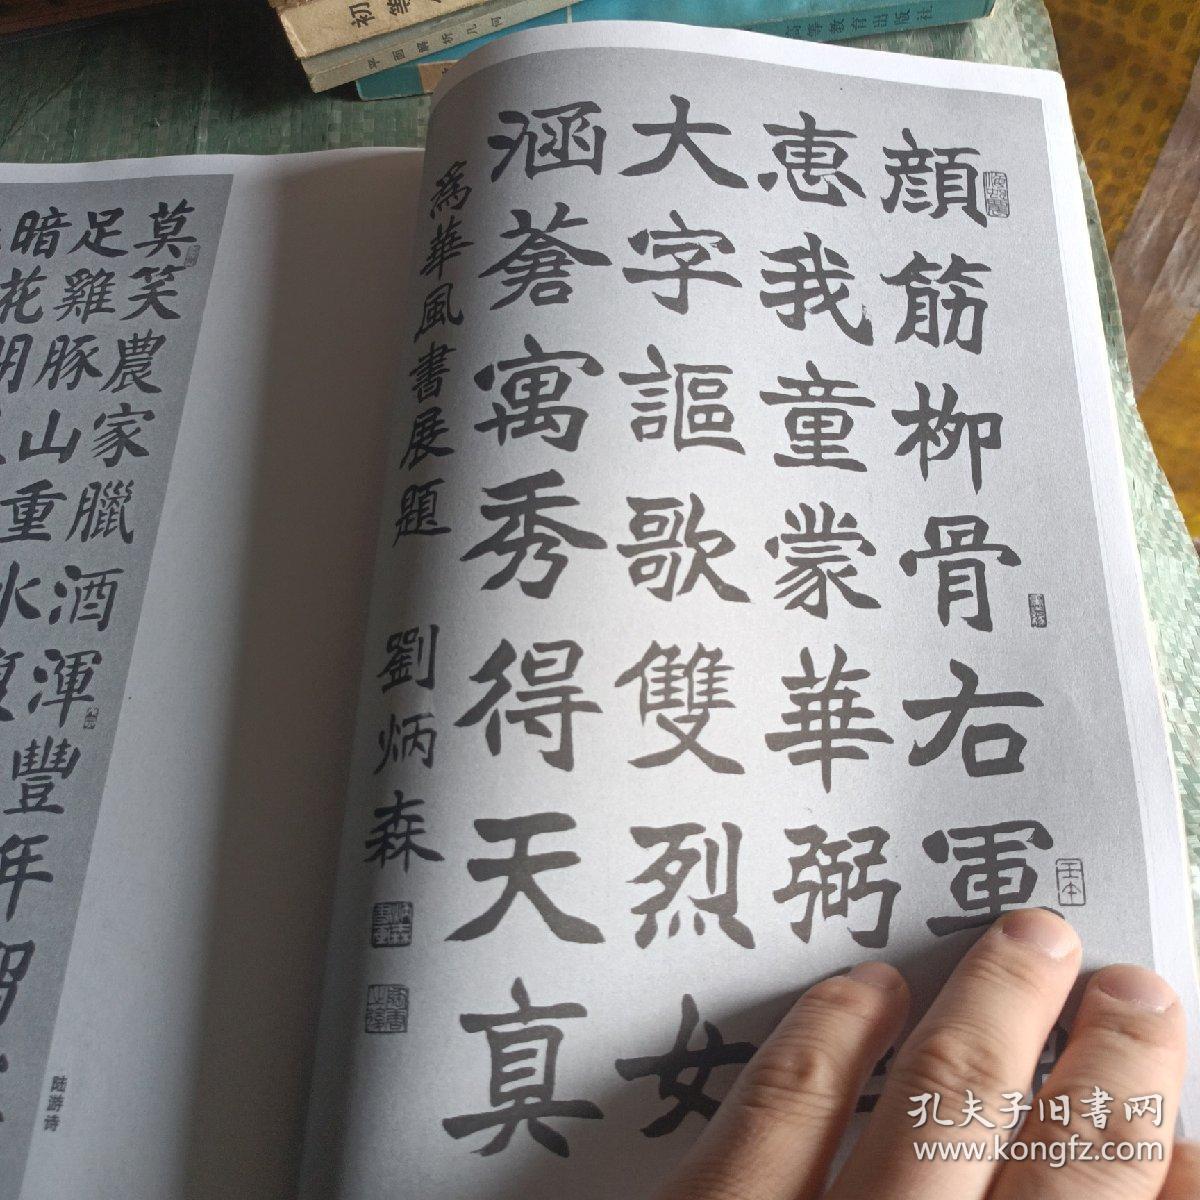 顔筋柳骨右軍
惠我童蒙華弼
大字謳歌雙烈女
涵蒼寓秀得天真
爲華風書展題 劉炳森
莫笑農家臘酒渾豐年
足雞豚山重水
暗花明
陆游诗
平面解析几何
高等教育出版社
初等
孔夫子旧書网
www.kongfz.com